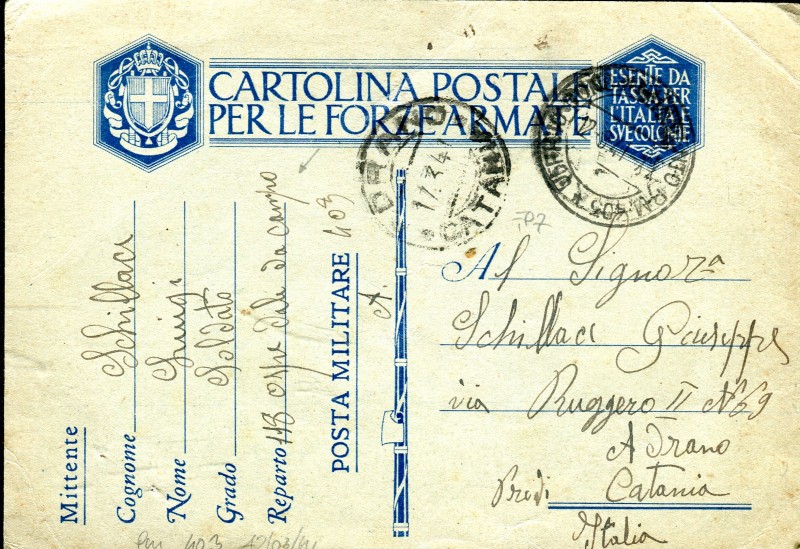 CARTOLINA POSTALE
PER LE FORZE ARMATE
ESENTE DA
TASSA PER
L'ITALIA E
SVE COLONIE
ADRANO
17.3.41
* CATANIA
P.M. 403 *
P7
Mittente
Cognome Schillaci
Nome Luigi
Grado Soldato
Reparto 113 da campo
POSTA MILITARE 403
A.
Al Signor
Schillaci Giuseppe
via Ruggero II N 69
Adrano
Catania
Italia
PM 403 12/03/41